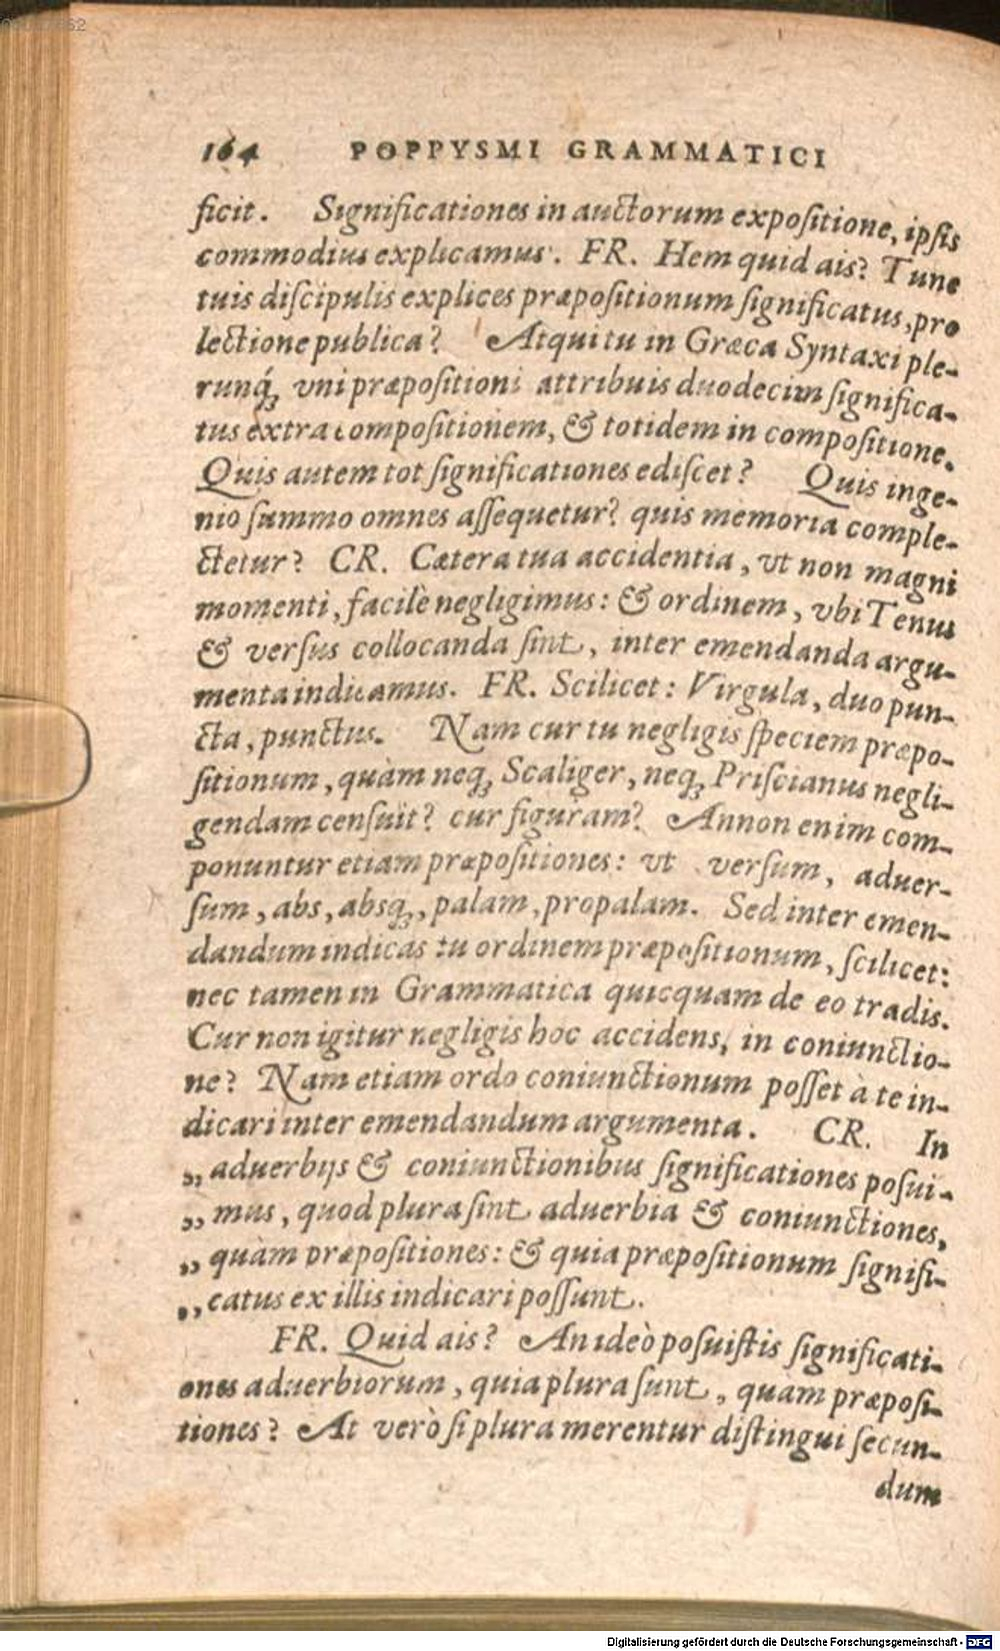 164 POPPYSMI GRAMMATICI
ficit. Significationes in auctorum expositione, ipsis
commodius explicamus. FR. Hem quid ais? Tune
tuis discipulis explices præpositionum significatus, pro
lectione publica? Atqui tu in Græca Syntaxi ple-
runq́; vni præpositioni attribuis duodecim significa-
tus extra compositionem, & totidem in compositione.
Quis autem tot significationes ediscet? Quis inge-
nio summo omnes assequetur? quis memoria comple-
ctetur? CR. Cætera tua accidentia, vt non magni
momenti, facilè negligimus: & ordinem, vbi Tenus
& versus collocanda sint, inter emendanda argu-
menta indicamus. FR. Scilicet: Virgula, duo pun-
cta, punctus. Nam cur tu negligis speciem præpo-
sitionum, quàm neq; Scaliger, neq; Priscianus negli-
gendam censuit? cur figuram? Annon enim com-
ponuntur etiam præpositiones: vt versum, aduer-
sum, abs, absq;, palam, propalam. Sed inter emen-
dandum indicas tu ordinem præpositionum, scilicet:
nec tamen in Grammatica quicquam de eo tradis.
Cur non igitur negligis hoc accidens, in coniunctio-
ne? Nam etiam ordo coniunctionum posset à te in-
dicari inter emendandum argumenta. CR. In
„ aduerbijs & coniunctionibus significationes posui-
„ mus, quod plura sint aduerbia & coniunctiones,
„ quàm præpositiones: & quia præpositionum signifi-
„ catus ex illis indicari possunt.
FR. Quid ais? An ideò posuistis significati-
ones aduerbiorum, quia plura sunt, quam præposi-
tiones? At verò si plura merentur distingui secun-
dum
Digitalisierung gefördert durch die Deutsche Forschungsgemeinschaft - DFG